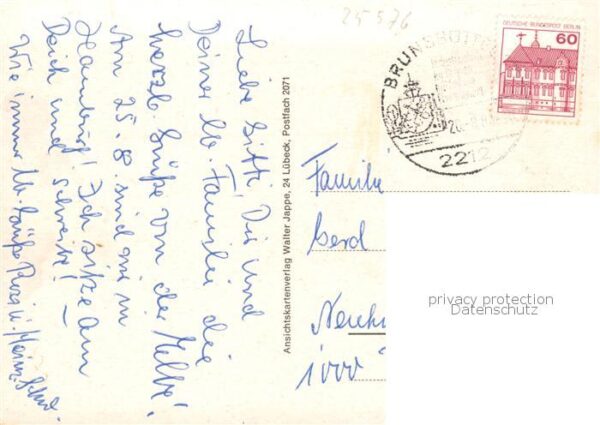 Liebe Gitti, Dir und
Deiner lb. Familie die
herzl. Grüße von der Elbe!
Am 25.8. sind wir in
Hamburg! Ich sitze am
Deich und schreibe!
Wie immer lb. Grüße
25576
Ansichtskartenverlag Walter Jappe, 24 Lübeck, Postfach 2071
BRUNSBÜTTEL
2212
DEUTSCHE BUNDESPOST BERLIN
60
Familie
Gerd
1000
privacy protection
Datenschutz